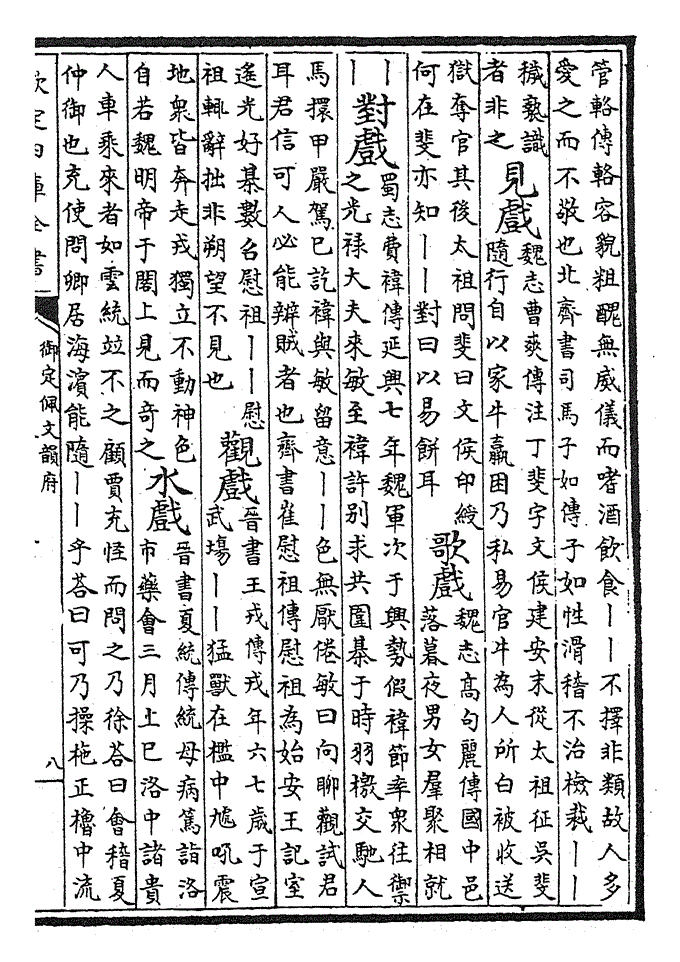 管輅傳輅容貌粗醜無威儀而嗜酒飲食丨丨不擇非類故人多
愛之而不敬也北齊書司馬子如傳子如性滑稽不治檢裁丨丨
穢褻識
者非之
見戲
魏志曹爽傳注丁斐字文侯建安末從太祖征吳斐
隨行自以家牛羸困乃私易官牛為人所白被收送
獄奪官其後太祖問斐曰文侯印綬
何在斐亦知丨丨對曰以易餅耳
歌戲
魏志高句麗傳國中邑
落暮夜男女羣聚相就
丨
丨
對戲
蜀志費禕傳延興七年魏軍次于興勢假禕節率衆往禦
之光祿大夫來敏至禕許別求共圍棊于時羽檄交馳人
馬擐甲嚴駕已訖禕與敏留意丨丨色無厭倦敏曰向聊觀試君
耳君信可人必能辦賊者也齊書崔慰祖傳慰祖為始安王記室
遙光好棊數召慰祖丨丨慰
祖輒辭拙非朔望不見也
觀戲
晉書王戎傳戎年六七歲于宣
武場丨丨猛獸在檻中虓吼震
地衆皆奔走戎獨立不動神色
自若魏明帝于閣上見而奇之
水戲
晉書夏統傳統母病篤詣洛
市藥會三月上巳洛中諸貴
人車乘來者如雲統竝不之顧賈充怪而問之乃徐答曰會稽夏
仲御也充使問卿居海濱能隨丨丨乎答曰可乃操柂正櫓中流
欽定四庫全書
御定佩文韻府
八